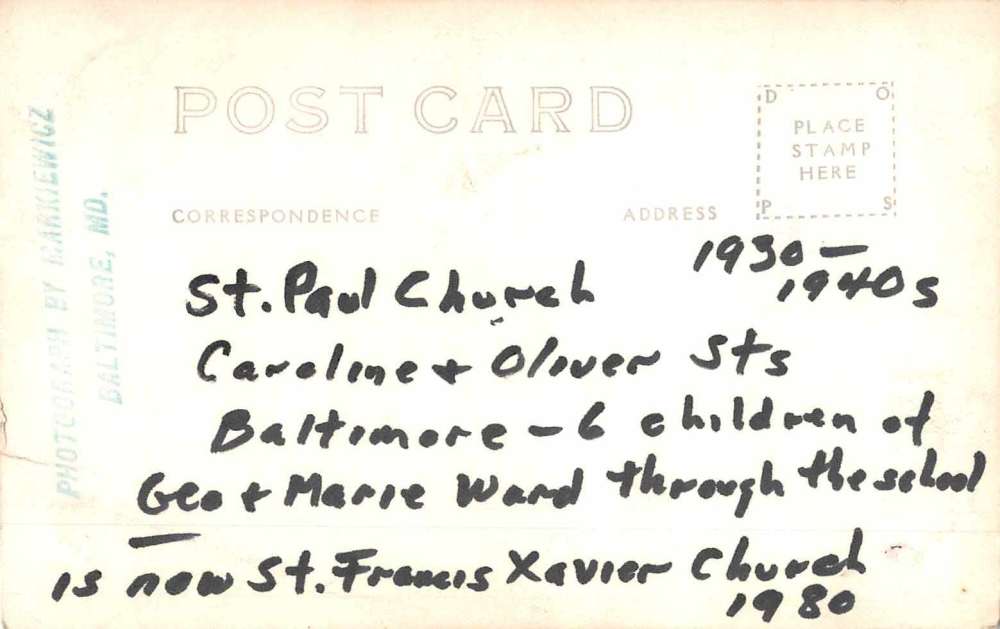 POST CARD
D O
PLACE
STAMP
HERE
P S
CORRESPONDENCE
ADDRESS
PHOTOGRAPH BY MARKIEWICZ
BALTIMORE, MD.
1930 —
1940s
St. Paul Church
Caroline + Oliver Sts
Baltimore — 6 children of
Geo + Marie Ward through the school
—
is now St. Francis Xavier Church
1980